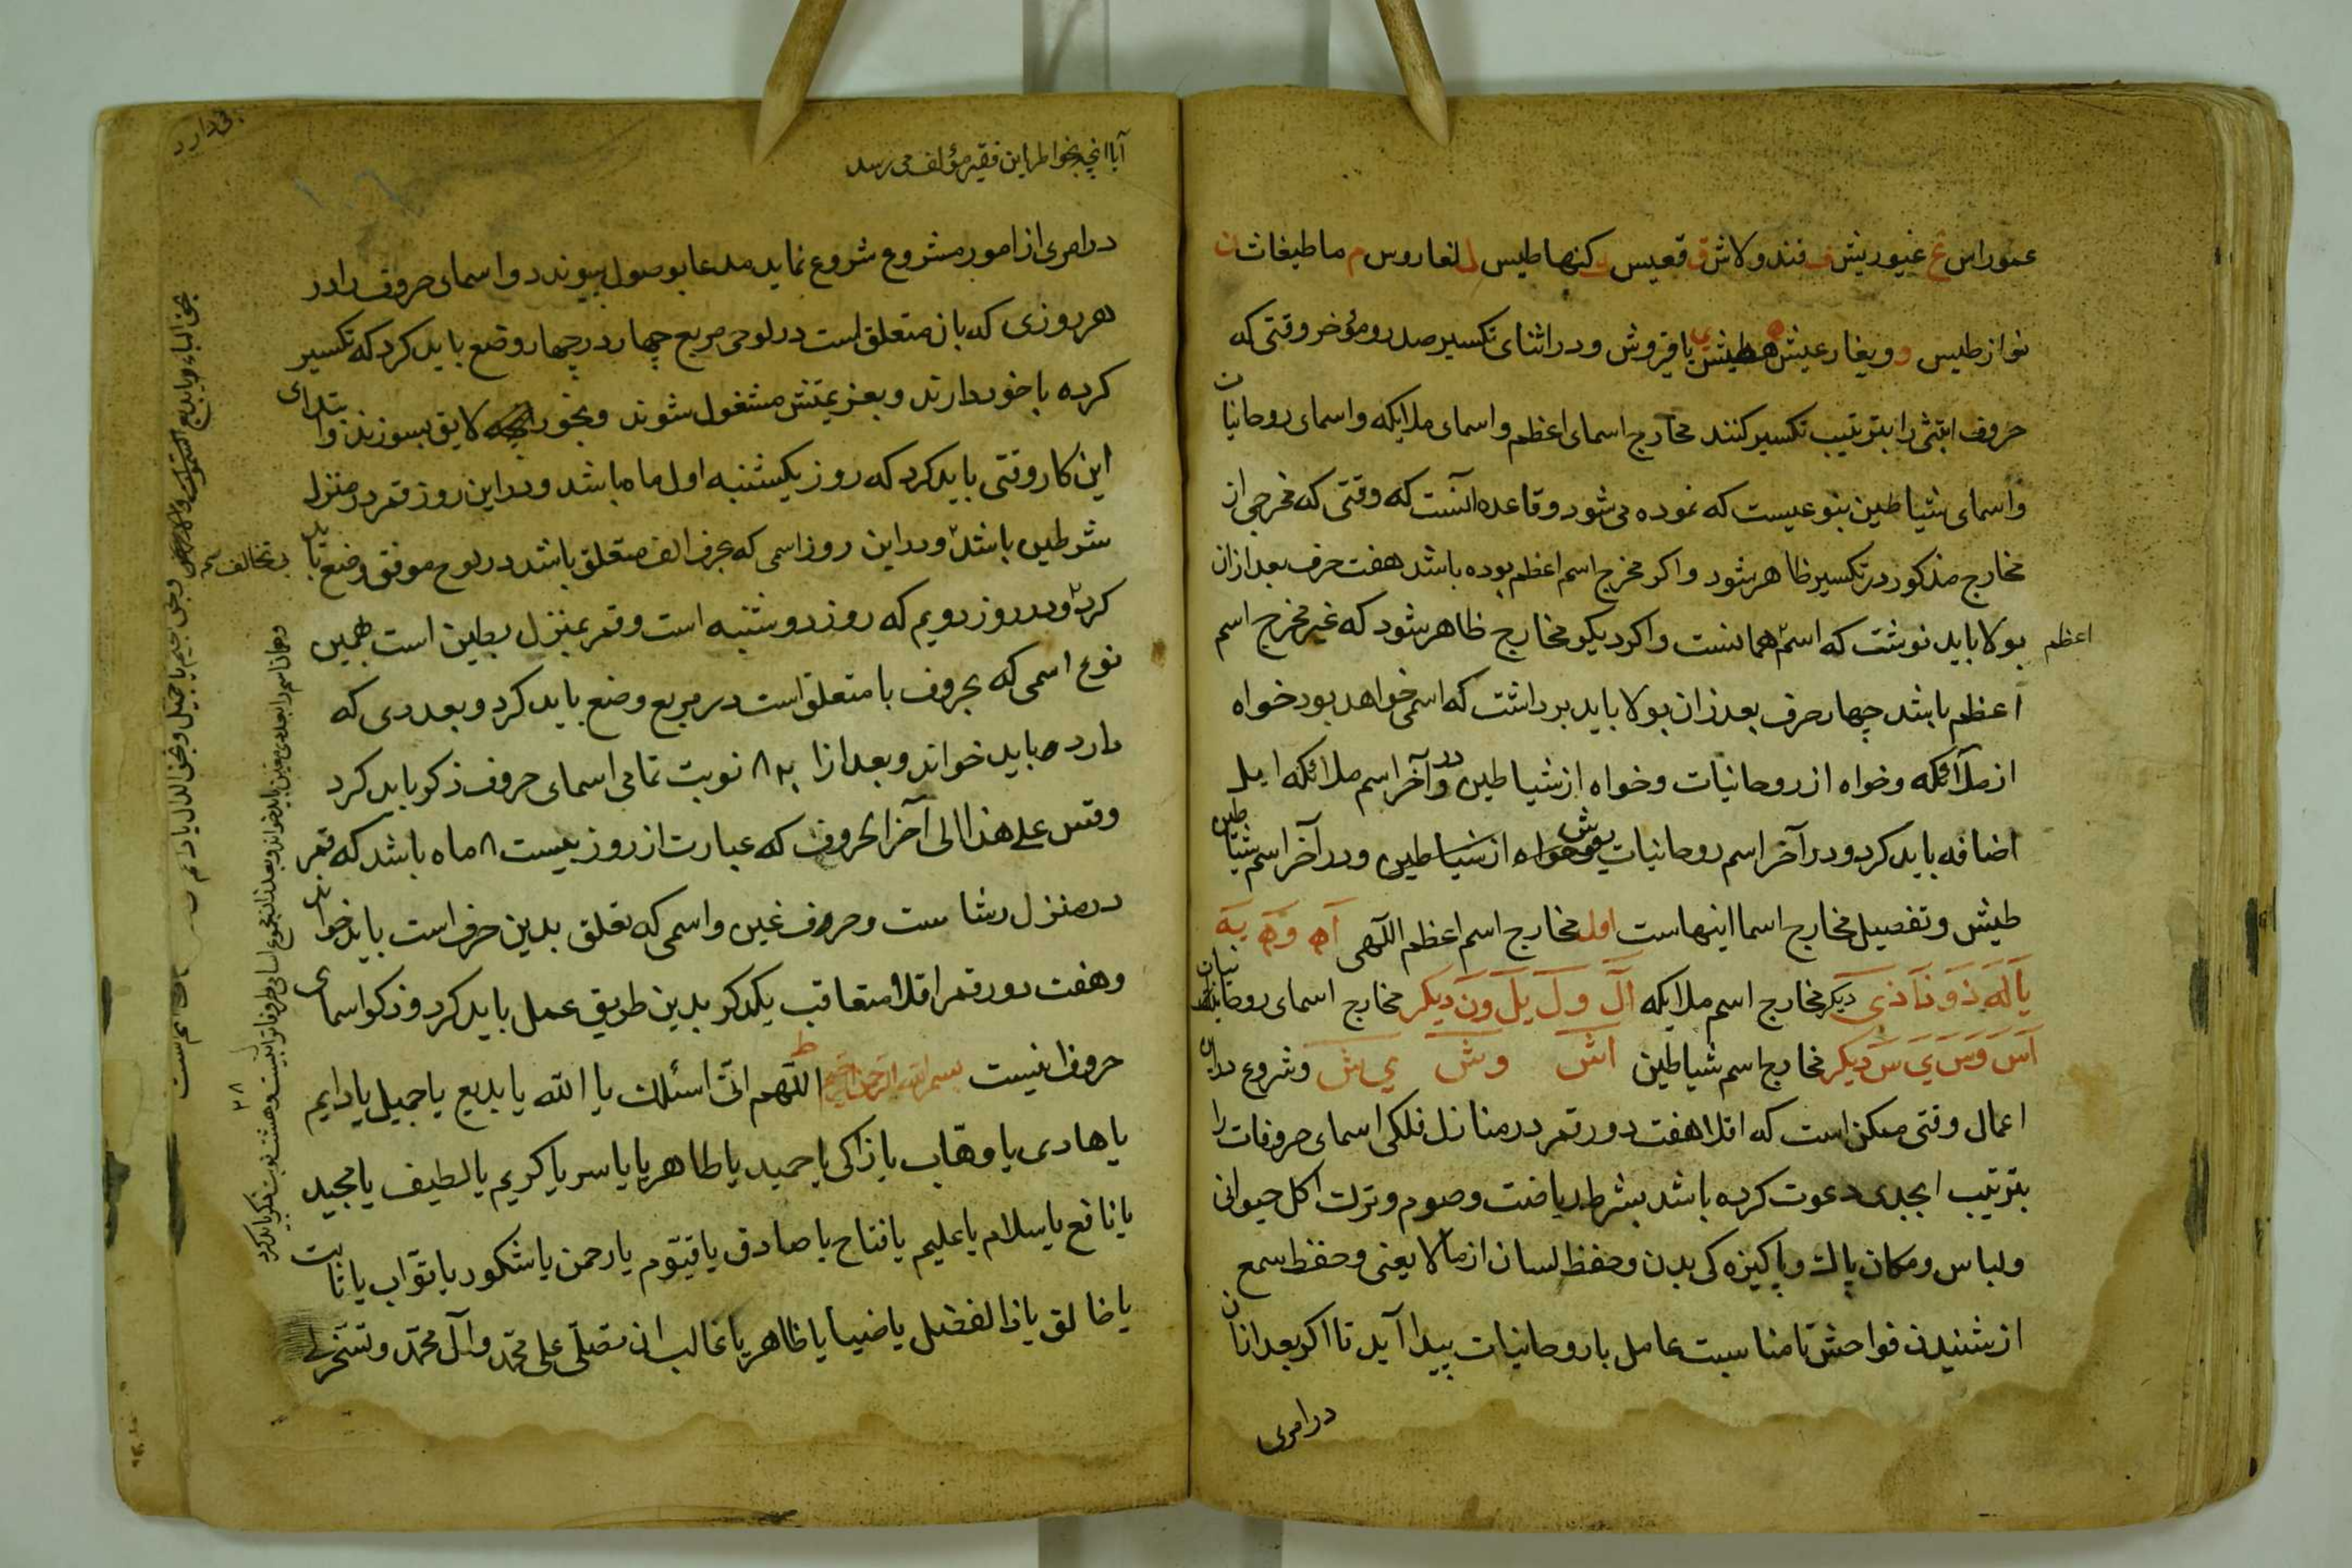 عنوراس غ غیوریش ف فندولاش ق قعیس ك کنهاطیس ل لغاروس م ماطیغاث ن
نوازطیس و ویغارعیش ه هطیش ی یاقروش و در اثنای تکسیر صدر و مؤخر وقتی که
حروف ابتثی را بترتیب تکسیر کنند مخارج اسمای اعظم و اسمای ملایکه و اسمای روحانیان
و اسمای شیاطین بنوعیست که نموده می شود و قاعده آنست که وقتی که مخرجی از
مخارج مذکور در تکسیر ظاهر شود و اکر مخرج اسم اعظم بوده باشد هفت حرف بعد از ان
بولا باید نوشت که اسم همانست و اکر دیکر مخارج ظاهر شود که غیر مخرج اسم
اعظم
اعظم باشد چهار حرف بعد از ان بولا باید برداشت که اسمی خواهد بود خواه
از ملائکه و خواه از روحانیات و خواه از شیاطین و در آخر اسم ملائکه ایل
اضافه باید کرد و در آخر اسم روحانیات یوش خواه از شیاطین و در آخر اسم شیاطین
طیش و تفصیل مخارج اسما اینهاست اول مخارج اسم اعظم الٓهی آه وه یه
یا له ذو نا ذی دیکر مخارج اسم ملایکه ال ول یل ون دیکر مخارج اسمای روحانیان
اس وس ی س دیکر مخارج اسم شیاطین اش وش ی ش و شروع در این
اعمال وقتی ممکن است که اقلا هفت دور قمر در منازل فلکی اسمای حروفات را
بترتیب ابجدی دعوت کرده باشد بشرط ریاضت و صوم و ترك اکل حیوانی
و لباس و مکان پاك و پاکیزه کی بدن و حفظ لسان از مالایعنی و حفظ سمع
از شنیدن فواحش تا مناسبت عامل با روحانیات پیدا آید تا اکر بعد از ان
در امری
آیا انچه بخواطر این فقیر مؤلف می رسد
در امری از امور مشروع شروع نماید مدعا بوصول پیوندد و اسمای حروف را در
هر روزی که بان متعلق است در لوحی مربع چهار در چهار وضع باید کرد که تکسیر
کرده با خود دارند و بعزیمتش مشغول شوند و بخور لایق بسوزند و ابتدای
این کار وقتی باید کرد که روز یکشنبه اول ماه باشد و در این روز قمر در منزل
شرطین باشد و در این روز اسمی که بحرف الف متعلق باشد در لوح موفق وضع باید
کرد و در روز دویم که روز دوشنبه است و قمر بمنزل بطین است بهمین
نوع اسمی که بحروف با متعلق است در مربع وضع باید کرد و بعددی که
دارد باید خواند و بعد از ان ۲۸ نوبت تمامی اسمای حروف ذکر باید کرد
وقس علی هذا الی آخر الحروف که عبارت از روز بیست ۸ ماه باشد که قمر
در منزل رشا ست و حروف غین و اسمی که تعلق بدین حرف است باید خواند
و هفت دور قمر اقلا متعاقب یکدکر بدین طریق عمل باید کرد و ذکر اسمای
حروف اینست بسم الله الرحمن الرحیم اللّهم انّی اسئلك یا الله یا بدیع یا جمیل یا دایم
یا هادی یا وهّاب یا زاکی یا حمید یا طاهر یا یاسر یا کریم یا لطیف یا مجید
یا نافع یا سلام یا علیم یا فتاح یا صادق یا قیّوم یا رحمن یا شکور یا توّاب یا ثابت
یا خالق یا ذا الفضل یا ضیا یا ظاهر یا غالب ان تصلّی علی محمّد و آل محمّد و تسخّر لی